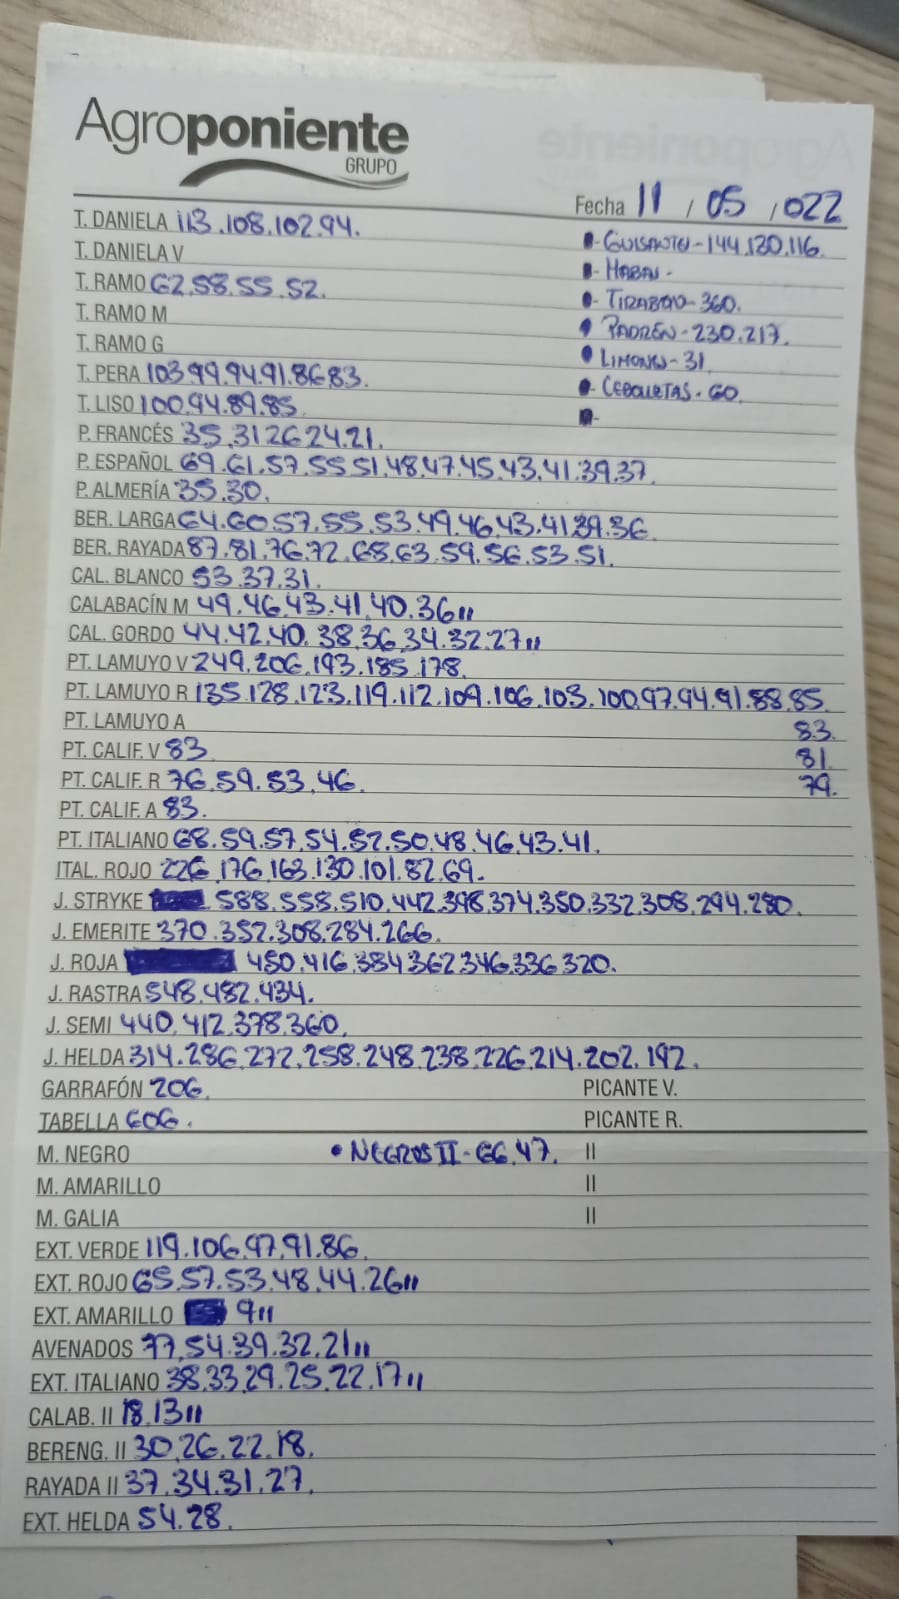 Agroponiente
GRUPO
Fecha 11 / 05 / 022
T. DANIELA 113.108.102.94.
- GUISANTES - 144.130.116.
T. DANIELA V
- HABAS -
T. RAMO 62.58.55.52.
- TIRABEQ - 360.
T. RAMO M
PADRÓN - 230.217.
T. RAMO G
LIMONES - 31
T. PERA 103.99.94.91.86.83.
- CEBOLLETAS - 60.
T. LISO 100.94.89.85.
-
P. FRANCÉS 35.31.26.24.21.
P. ESPAÑOL 69.61.57.55.51.48.47.45.43.41.39.37.
P. ALMERÍA 35.30.
BER. LARGA 64.60.57.55.53.49.46.43.41.39.36.
BER. RAYADA 87.81.76.72.68.63.59.56.53.51.
CAL. BLANCO 53.37.31.
CALABACÍN M 49.46.43.41.40.36 ,,
CAL. GORDO 44.42.40.38.36.34.32.27 ,,
PT. LAMUYO V 249.206.193.185.178.
PT. LAMUYO R 135.128.123.119.112.109.106.103.100.97.94.91.88.85.
PT. LAMUYO A 83.
PT. CALIF. V 83 81
PT. CALIF. R 76.59.53.46. 79.
PT. CALIF. A 83.
PT. ITALIANO 68.59.57.54.52.50.48.46.43.41.
ITAL. ROJO 226.176.163.130.101.82.69.
J. STRYKE 588.558.510.442.398.374.350.332.308.294.280.
J. EMERITE 370.352.308.284.266.
J. ROJA 450.416.384.362.346.336.320.
J. RASTRA 548.482.434.
J. SEMI 440.412.378.360.
J. HELDA 314.286.272.258.248.238.226.214.202.192.
GARRAFÓN 206. PICANTE V.
TABELLA 606. PICANTE R.
M. NEGRO • NEGROS II - 66.47. II
M. AMARILLO II
M. GALIA II
EXT. VERDE 119.106.97.91.86.
EXT. ROJO 65.57.53.48.44.26 ,,
EXT. AMARILLO 9 ,,
AVENADOS 77.54.39.32.21 ,,
EXT. ITALIANO 38.33.29.25.22.17 ,,
CALAB. II 18.13 ,,
BERENG. II 30.26.22.18.
RAYADA II 37.34.31.27.
EXT. HELDA 54.28.